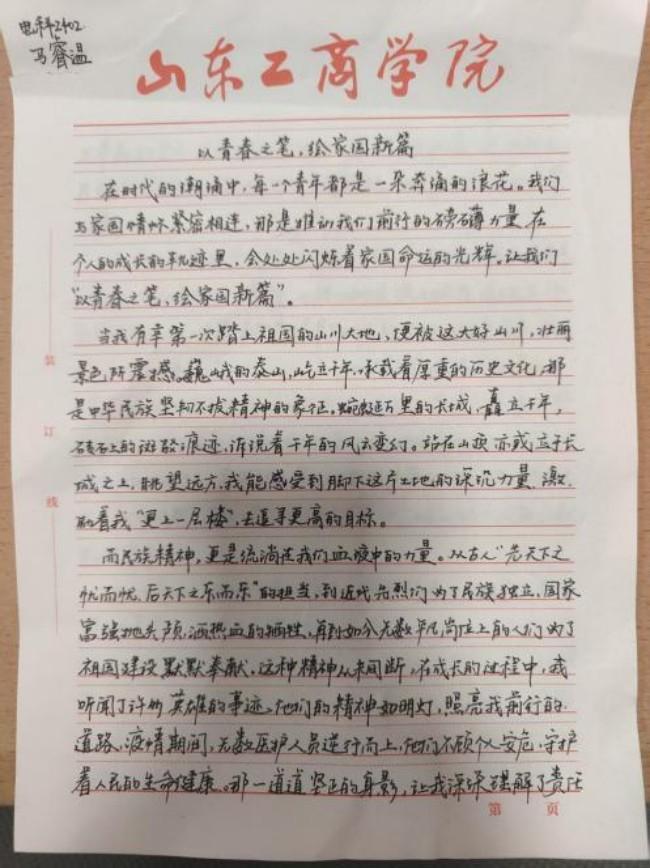 电科2402
马睿温
山东工商学院
以青春之笔，绘家国新篇
在时代的潮涌中，每一个青年都是一朵奔涌的浪花。我们
与家国情怀紧密相连，那是推动我们前行的磅礴力量，在
个人的成长的轨迹里，会处处闪烁着家国命运的光辉。让我们
“以青春之笔，绘家国新篇”。
当我有幸第一次踏上祖国的山川大地，便被这大好山川，壮丽
景色所震撼。巍峨的泰山，屹立千年，承载着厚重的历史文化，那
是中华民族坚韧不拔精神的象征。蜿蜒万里的长城，矗立千年，
砖石上的斑驳痕迹，诉说着千年的风云变幻。站在山顶亦或立于长
城之上，眺望远方，我能感受到脚下这片土地的深沉力量，激
励着我“更上一层楼”，去追寻更高的目标。
而民族精神，更是流淌在我们血液中的力量。从古人“先天下之
忧而忧，后天下之乐而乐”的担当，到近代先烈们为了民族独立，国家
富强抛头颅，洒热血的牺牲，再到如今无数平凡岗位上的人们为了
祖国建设默默奉献，这种精神从未间断，在成长的过程中，我
听闻了许多英雄的事迹，他们的精神如明灯，照亮我前行的
道路，疫情期间，无数医护人员逆行而上，他们不顾个人安危，守护
着人民的生命健康。那一道道坚定的身影，让我深深理解了责任
装
订
线
第 页